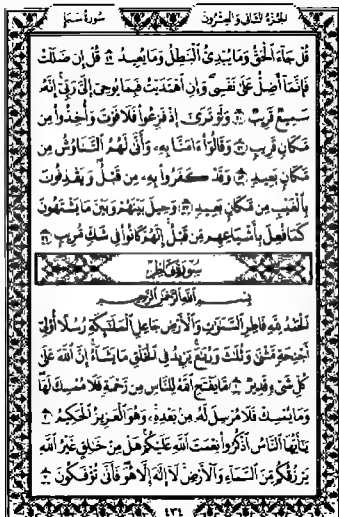 الجزء الثاني والعشرون سورة سبإ
قُلْ جَاءَ الْحَقُّ وَمَا يُبْدِئُ الْبَاطِلُ وَمَا يُعِيدُ ۝ قُلْ إِن ضَلَلْتُ
فَإِنَّمَا أَضِلُّ عَلَىٰ نَفْسِي وَإِنِ اهْتَدَيْتُ فَبِمَا يُوحِي إِلَيَّ رَبِّي إِنَّهُ
سَمِيعٌ قَرِيبٌ ۝ وَلَوْ تَرَىٰ إِذْ فَزِعُوا فَلَا فَوْتَ وَأُخِذُوا مِن
مَّكَانٍ قَرِيبٍ ۝ وَقَالُوا ءَامَنَّا بِهِ وَأَنَّىٰ لَهُمُ التَّنَاوُشُ مِن
مَّكَانٍ بَعِيدٍ ۝ وَقَدْ كَفَرُوا بِهِ مِن قَبْلُ وَيَقْذِفُونَ
بِالْغَيْبِ مِن مَّكَانٍ بَعِيدٍ ۝ وَحِيلَ بَيْنَهُمْ وَبَيْنَ مَا يَشْتَهُونَ
كَمَا فُعِلَ بِأَشْيَاعِهِم مِّن قَبْلُ إِنَّهُمْ كَانُوا فِي شَكٍّ مُّرِيبٍ ۝
سورة فاطر
بِسْمِ اللَّهِ الرَّحْمَٰنِ الرَّحِيمِ
الْحَمْدُ لِلَّهِ فَاطِرِ السَّمَٰوَٰتِ وَالْأَرْضِ جَاعِلِ الْمَلَٰئِكَةِ رُسُلًا أُولِي
أَجْنِحَةٍ مَّثْنَىٰ وَثُلَٰثَ وَرُبَٰعَ يَزِيدُ فِي الْخَلْقِ مَا يَشَاءُ إِنَّ اللَّهَ عَلَىٰ
كُلِّ شَيْءٍ قَدِيرٌ ۝ مَّا يَفْتَحِ اللَّهُ لِلنَّاسِ مِن رَّحْمَةٍ فَلَا مُمْسِكَ لَهَا
وَمَا يُمْسِكْ فَلَا مُرْسِلَ لَهُ مِن بَعْدِهِ وَهُوَ الْعَزِيزُ الْحَكِيمُ ۝
يَٰأَيُّهَا النَّاسُ اذْكُرُوا نِعْمَتَ اللَّهِ عَلَيْكُمْ هَلْ مِنْ خَٰلِقٍ غَيْرُ اللَّهِ
يَرْزُقُكُم مِّنَ السَّمَاءِ وَالْأَرْضِ لَا إِلَٰهَ إِلَّا هُوَ فَأَنَّىٰ تُؤْفَكُونَ ۝
٤٣٤